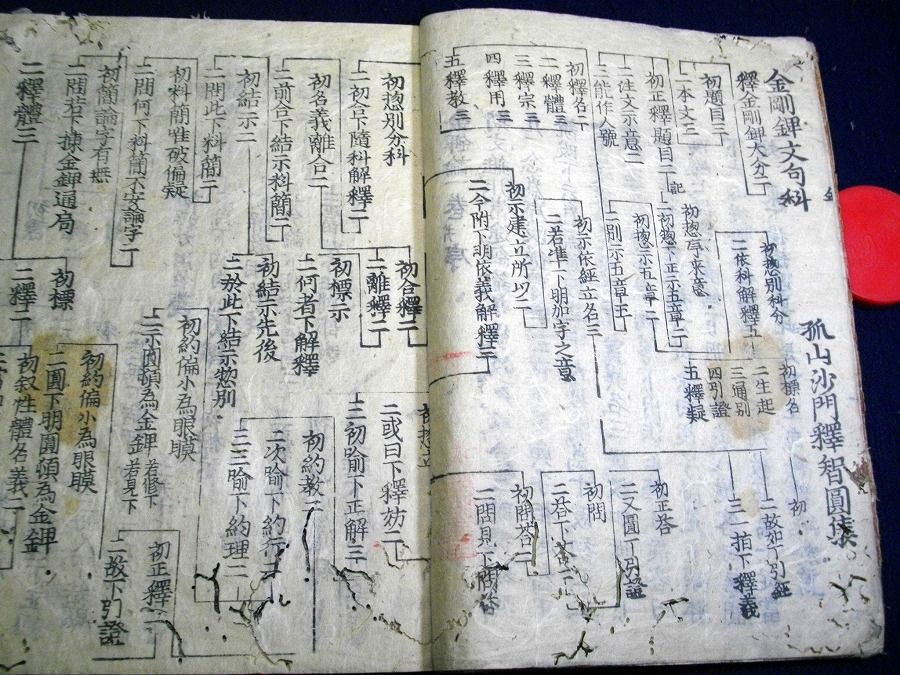 金剛錍文句科
孤山沙門釋智圓集
釋金剛錍大分二
初題目三
二本文三
初正釋題目二
二注文示意二
三能作人號
初釋名二
二釋體三
三釋宗三
四釋用三
五釋教三
初揔別科分
二依科解釋五
初揔示來意
二初揔下正示五章二
初揔示五章二
二別示五章五
初示依經立名三
二若準下明加字之意
初示建立所以二
二今附下明依義解釋二
初標名
二生起
三通別
四引證
五釋疑
初
二故如下引經
三一指下釋義
初正答
二又圓下引證
初問
二答下答二
初開答二
初揔別分科
二初合下隨科解釋二
初名義離合二
二前合下結示料簡二
初結示二
二問此下料簡二
初料簡唯破偏疑
二問何下料簡不安論字二
初簡論字有無
二問若下揀金錍通局
二釋體三
初合釋二
二離釋二
初標示
二何者下解釋
初結示先後
二於此下結示揔別
初標
二釋二
二或曰下釋妨二
二初喻下正解三
初約教二
二次喻下約行二
三三喻下約理二
初約偏小為眼膜
二示圓頓為金錍
若修下
若見下
初約偏小為眼膜
二圓下明圓頓為金錍
初叙性體名義二
初正釋二
二故下引證